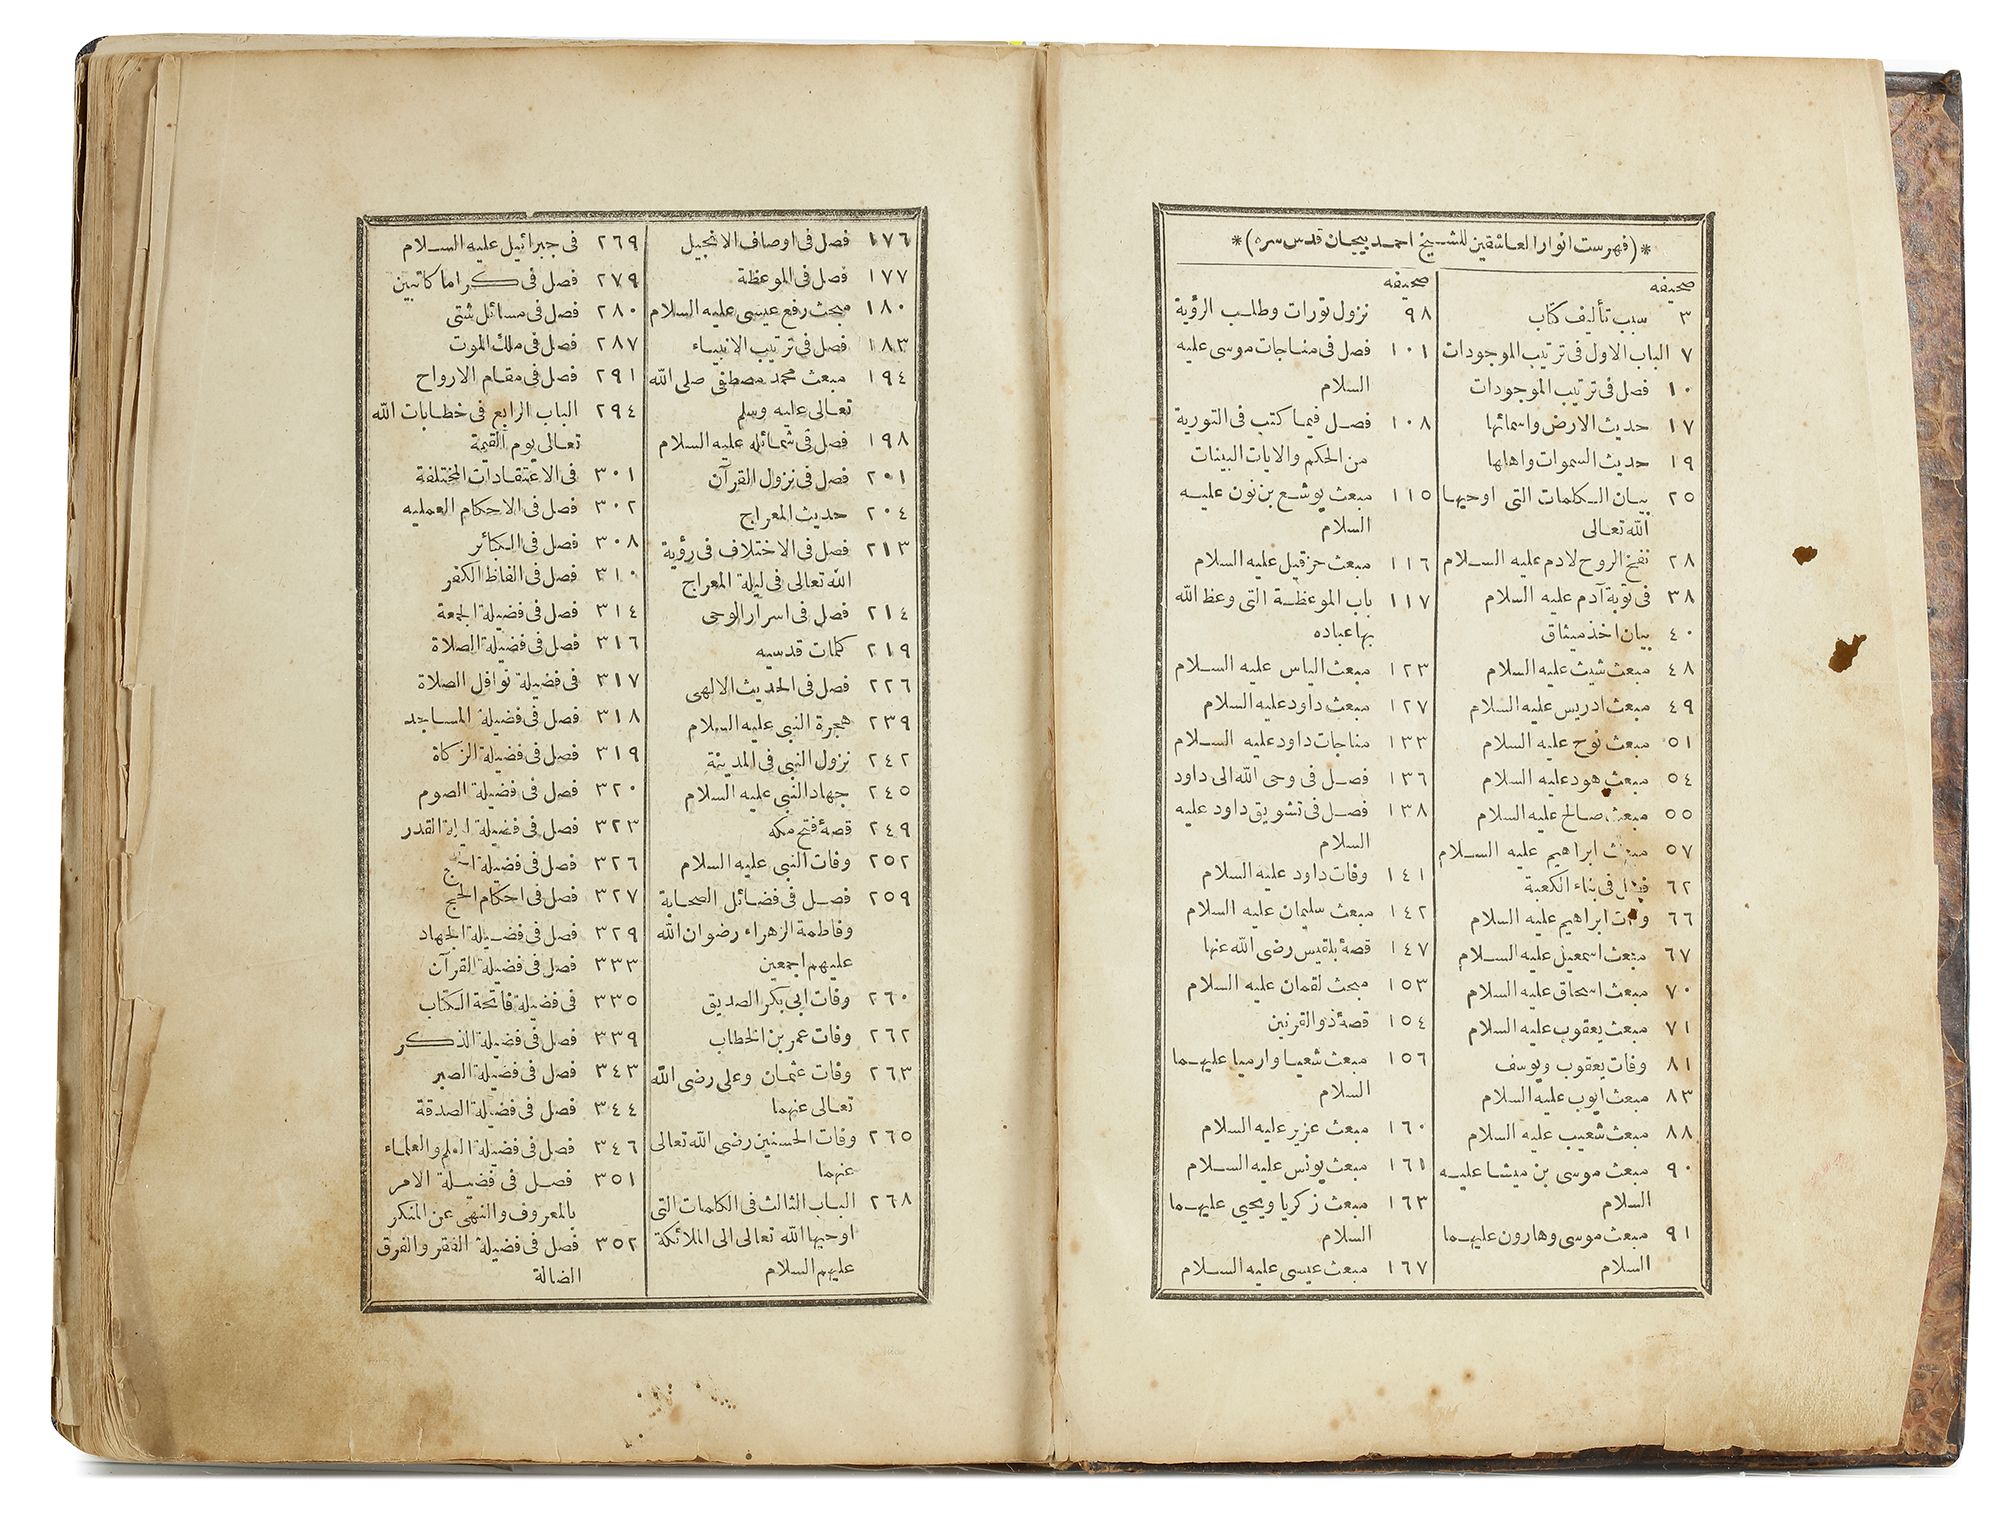 *(فهرست انوار العاشقين للشيخ احمد بيجان قدس سره)*
صحيفه
٣ سبب تأليف كتاب
٧ الباب الاول فى ترتيب الموجودات
١٠ فصل فى ترتيب الموجودات
١٧ حديث الارض واسمائها
١٩ حديث السموات واهلها
٢٥ بيان الكلمات التى اوحيها
الله تعالى
٢٨ نفخ الروح لادم عليه السلام
٣٨ فى توبة آدم عليه السلام
٤٠ بيان اخذ ميثاق
٤٨ مبعث شيث عليه السلام
٤٩ مبعث ادريس عليه السلام
٥١ مبعث نوح عليه السلام
٥٤ مبعث هود عليه السلام
٥٥ مبعث صالح عليه السلام
٥٧ مبعث ابراهيم عليه السلام
٦٢ فصل فى بناء الكعبة
٦٦ وفات ابراهيم عليه السلام
٦٧ مبعث اسمعيل عليه السلام
٧٠ مبعث اسحاق عليه السلام
٧١ مبعث يعقوب عليه السلام
٨١ وفات يعقوب ويوسف
٨٣ مبعث ايوب عليه السلام
٨٨ مبعث شعيب عليه السلام
٩٠ مبعث موسى بن ميشا عليه
السلام
٩١ مبعث موسى وهارون عليهما
السلام
صحيفه
٩٨ نزول تورات وطلب الرؤية
١٠١ فصل فى مناجات موسى عليه
السلام
١٠٨ فصل فيما كتب فى التورية
من الحكم والايات البينات
١١٥ مبعث يوشع بن نون عليه
السلام
١١٦ مبعث حزقيل عليه السلام
١١٧ باب الموعظة التى وعظ الله
بها عباده
١٢٣ مبعث الياس عليه السلام
١٢٧ مبعث داود عليه السلام
١٣٣ مناجات داود عليه السلام
١٣٦ فصل فى وحى الله الى داود
١٣٨ فصل فى تشويق داود عليه
السلام
١٤١ وفات داود عليه السلام
١٤٢ مبعث سليمان عليه السلام
١٤٧ قصهٔ بلقيس رضى الله عنها
١٥٣ مبحث لقمان عليه السلام
١٥٤ قصهٔ ذو القرنين
١٥٦ مبعث شعيا وارميا عليهما
السلام
١٦٠ مبعث عزير عليه السلام
١٦١ مبعث يونس عليه السلام
١٦٣ مبعث زكريا ويحيى عليهما
السلام
١٦٧ مبعث عيسى عليه السلام
١٧٦ فصل فى اوصاف الانجيل
١٧٧ فصل فى الموعظة
١٨٠ مبحث رفع عيسى عليه السلام
١٨٣ فصل فى ترتيب الانبياء
١٩٤ مبعث محمد مصطفى صلى الله
تعالى عليه وسلم
١٩٨ فصل فى شمائله عليه السلام
٢٠١ فصل فى نزول القرآن
٢٠٤ حديث المعراج
٢١٣ فصل فى الاختلاف فى رؤية
الله تعالى فى ليلة المعراج
٢١٤ فصل فى اسرار الوحى
٢١٩ كلمات قدسيه
٢٢٦ فصل فى الحديث الالهى
٢٣٩ هجرة النبى عليه السلام
٢٤٢ نزول النبى فى المدينة
٢٤٥ جهاد النبى عليه السلام
٢٤٩ قصهٔ فتح مكه
٢٥٢ وفات النبى عليه السلام
٢٥٩ فصل فى فضائل الصحابة
وفاطمة الزهراء رضوان الله
عليهم اجمعين
٢٦٠ وفات ابى بكر الصديق
٢٦٢ وفات عمر بن الخطاب
٢٦٣ وفات عثمان وعلى رضى الله
تعالى عنهما
٢٦٥ وفات الحسنين رضى الله تعالى
عنهما
٢٦٨ الباب الثالث فى الكلمات التى
اوحيها الله تعالى الى الملائكة
عليهم السلام
٢٦٩ فى جبرائيل عليه السلام
٢٧٩ فصل فى كراما كاتبين
٢٨٠ فصل فى مسائل شتى
٢٨٧ فصل فى ملك الموت
٢٩١ فصل فى مقام الارواح
٢٩٤ الباب الرابع فى خطابات الله
تعالى يوم القيمة
٣٠١ فى الاعتقادات المختلفة
٣٠٢ فصل فى الاحكام العمليه
٣٠٨ فصل فى الكبائر
٣١٠ فصل فى الفاظ الكفر
٣١٤ فصل فى فضيلة الجمعة
٣١٦ فصل فى فضيلة الصلاة
٣١٧ فى فضيلة نوافل الصلاة
٣١٨ فصل فى فضيلة المساجد
٣١٩ فصل فى فضيلة الزكاة
٣٢٠ فصل فى فضيلة الصوم
٣٢٣ فصل فى فضيلة ليلة القدر
٣٢٦ فصل فى فضيلة الحج
٣٢٧ فصل فى احكام الحج
٣٢٩ فصل فى فضيلة الجهاد
٣٣٣ فصل فى فضيلة القرآن
٣٣٥ فى فضيلة فاتحة الكتاب
٣٣٩ فصل فى فضيلة الذكر
٣٤٣ فصل فى فضيلة الصبر
٣٤٤ فصل فى فضيلة الصدقة
٣٤٦ فصل فى فضيلة العلم والعلماء
٣٥١ فصل فى فضيلة الامر
بالمعروف والنهى عن المنكر
٣٥٢ فصل فى فضيلة الفقر والفرق
الضالة